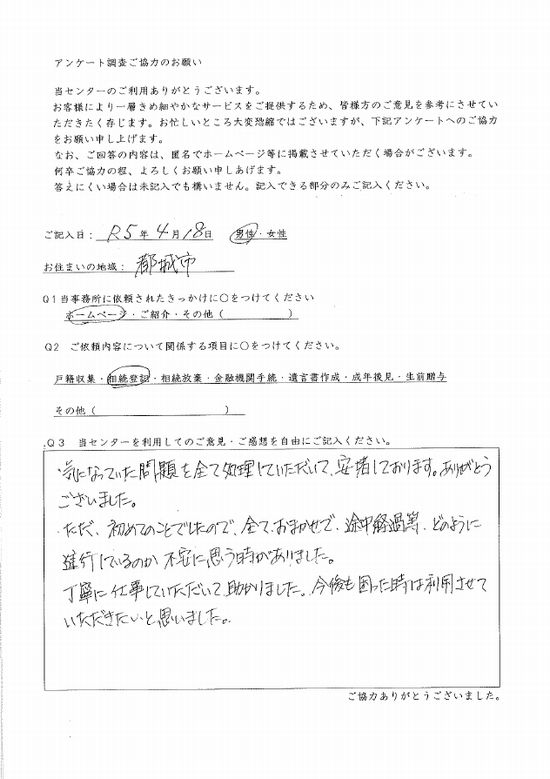 アンケート調査ご協力のお願い
当センターのご利用ありがとうございます。
お客様により一層きめ細やかなサービスをご提供するため、皆様方のご意見を参考にさせてい
ただきたく存じます。お忙しいところ大変恐縮ではございますが、下記アンケートへのご協力
をお願い申し上げます。
なお、ご回答の内容は、匿名でホームページ等に掲載させていただく場合がございます。
何卒ご協力の程、よろしくお願い申しあげます。
答えにくい場合は未記入でも構いません。記入できる部分のみご記入ください。
ご記入日: R5年4月18日 男性・女性
お住まいの地域: 都城市
Q1当事務所に依頼されたきっかけに○をつけてください
ホームページ・ご紹介・その他( )
Q2 ご依頼内容について関係する項目に○をつけてください。
戸籍収集・相続登記・相続放棄・金融機関手続・遺言書作成・成年後見・生前贈与
その他( )
Q3 当センターを利用してのご意見・ご感想を自由にご記入ください。
・気になっていた問題を全て処理していただいて、安堵しております。ありがとう
ございました。
・ただ、初めてのことでしたので、全て、おまかせで、途中経過等、どのように
進行しているのか不安に思う時がありました。
丁寧に仕事していただいて助かりました。今後も困った時は利用させて
いただきたいと思いました。
ご協力ありがとうございました。